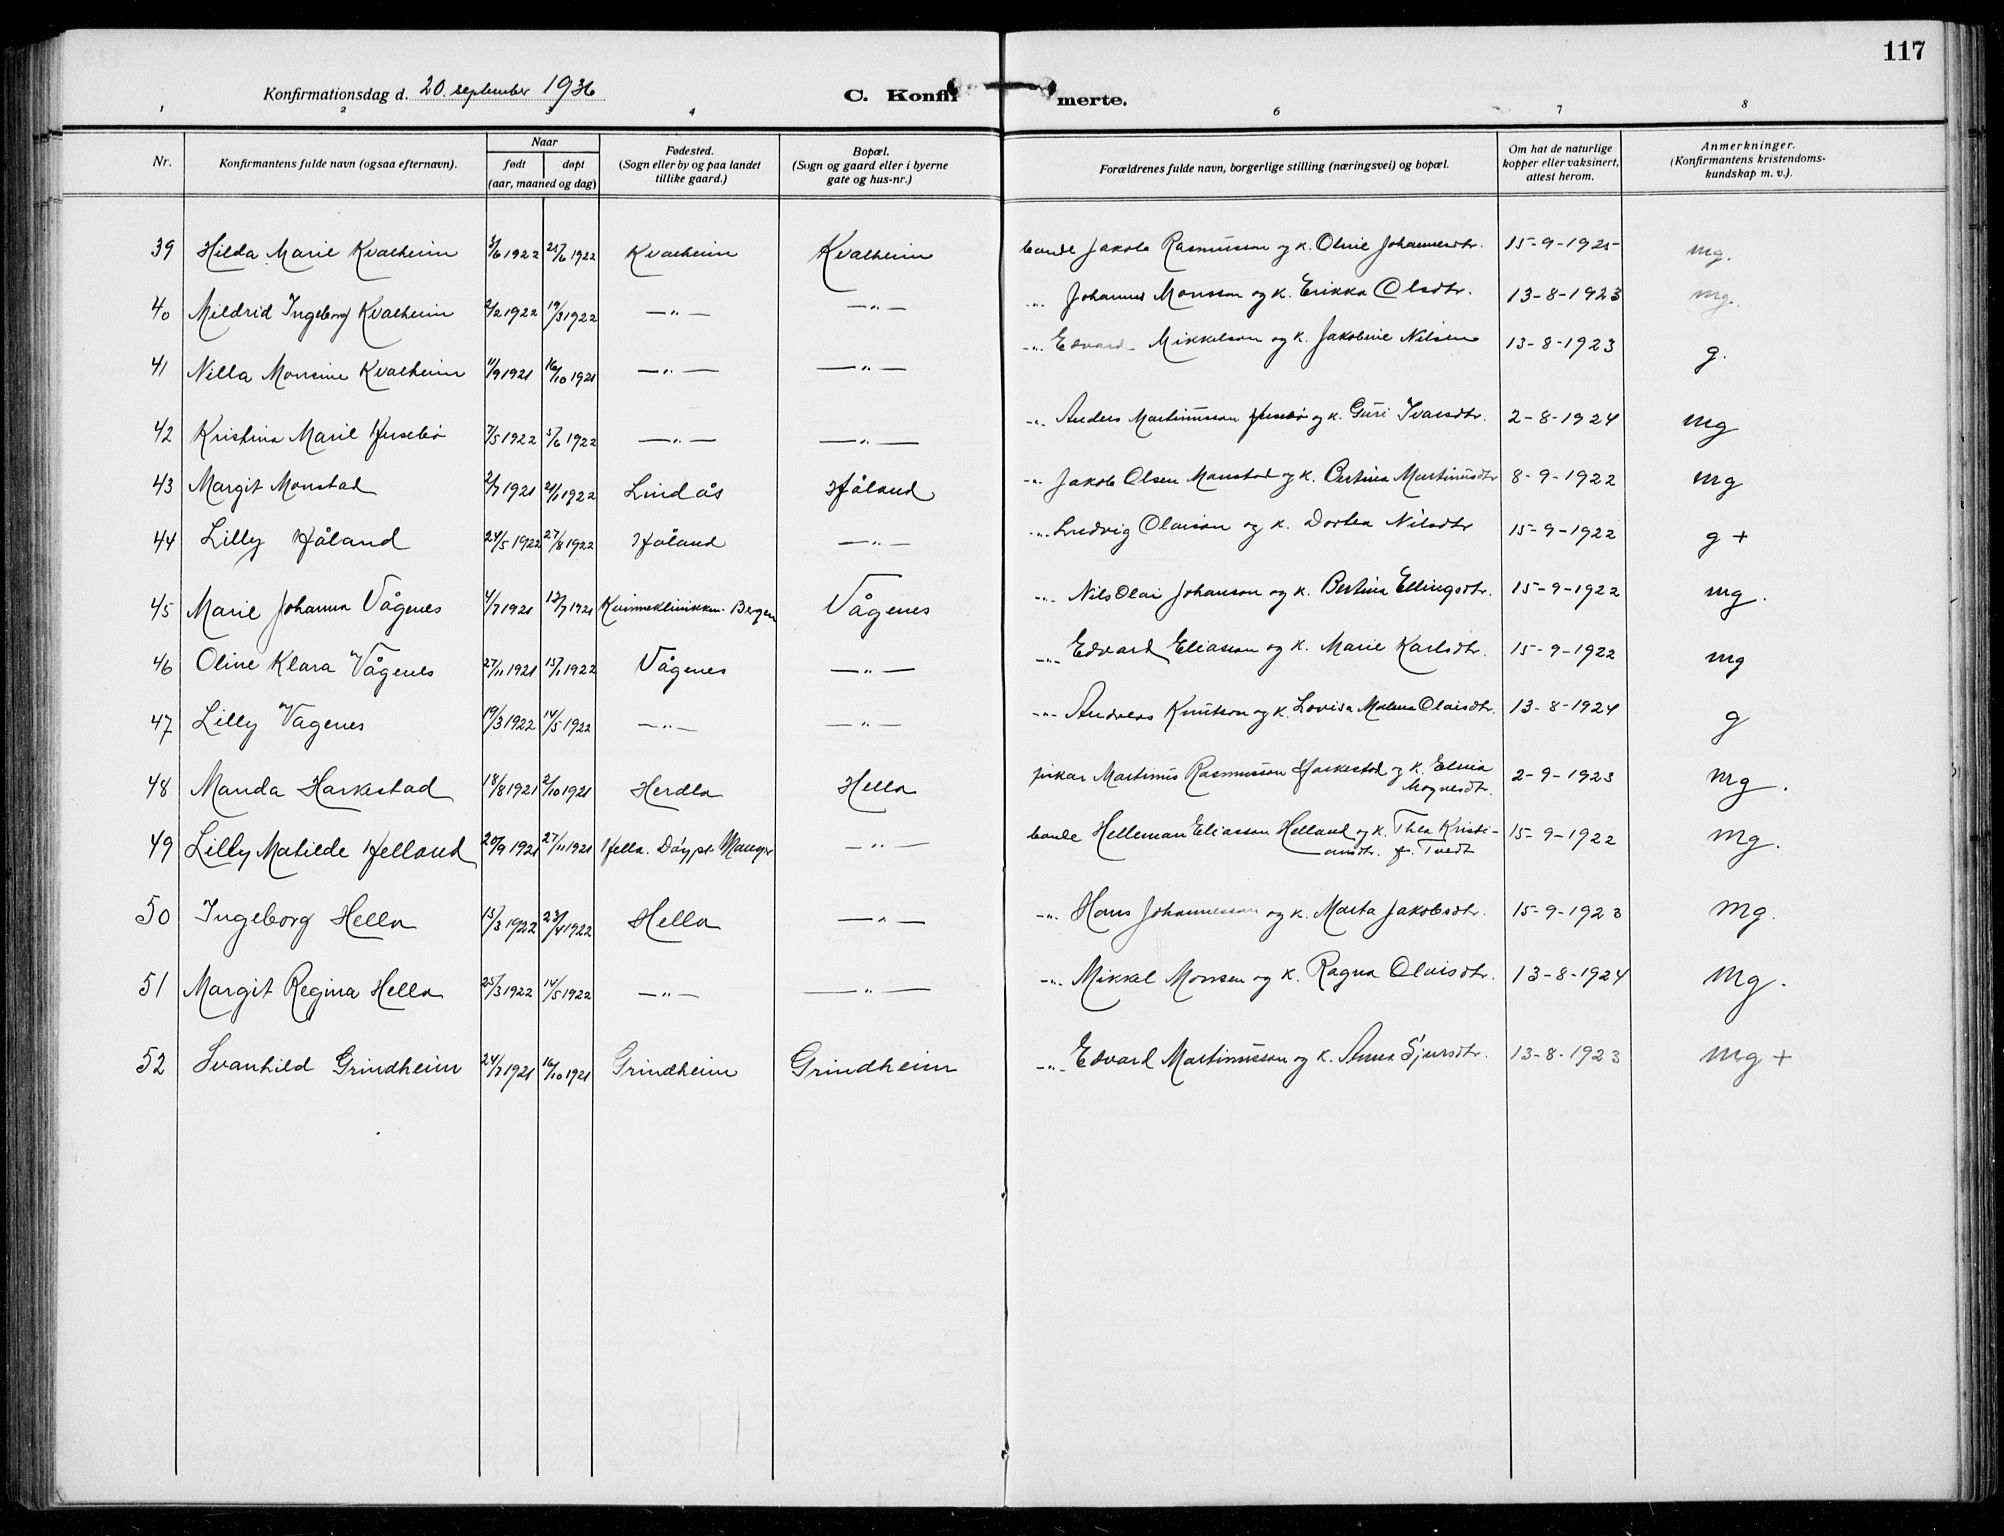 117
Konfirmationsdag d. 20. september 1936
C. Konfirmerte.
1 2 3 4 6 7 8
Nr. Konfirmantens fulde navn (ogsaa efternavn). Naar født døpt (aar, maaned og dag) Fødested. (Sogn eller by og paa landet tillike gaard.) Bopæl. (Sogn og gaard eller i byerne gate og hus-nr.) Forældrenes fulde navn, borgerlige stilling (næringsvei) og bopæl. Om hat de naturlige kopper eller vaksinert, attest herom. Anmerkninger. (Konfirmantens kristendomskundskap m. v.).
39 Hilda Marie Kvalheim 3/6 1922 25/6 1922 Kvalheim Kvalheim bonde Jakob Rasmusson og k. Oline Johannesdtr. 15-9-1925 mg.
40 Mildrid Ingeborg Kvalheim 2/2 1922 19/3 1922 —"— —"— -"- Johannes Monsson og k. Erikka Olsdtr. 13-8-1923 mg.
41 Nilla Monsine Kvalheim 11/9 1921 16/10 1921 —"— —"— -"- Edvard Mikkelson og k. Jakobine Nilsen 13-8-1923 g.
42 Kristina Marie Husebø 7/5 1922 5/6 1922 —"— —"— -"- Anders Martinusson Husebø og k. Guri Ivarsdtr. 2-8-1924 mg
43 Margit Monstad 2/7 1921 2/1 1922 Lindås Håland -"- Jakob Olsen Monstad og k. Bertina Martinusdtr 8-9-1922 mg
44 Lilly Håland 24/5 1922 27/8 1922 Håland —"— -"- Ludvig Olaison og k. Dortea Nilsdtr 15-9-1922 g +
45 Marie Johanna Vågenes 4/7 1921 12/7 1921 Kvinneklinikken. Bergen Vågenes -"- Nils Olai Johanson og k. Bertina Ellingsdtr. 15-9-1922 mg.
46 Oline Klara Vågenes 27/11 1921 15/1 1922 Vågenes —"— -"- Edvard Eliasson og k. Marie Karlsdtr. 15-9-1922 mg
47 Lilly Vågenes 19/3 1922 14/5 1922 —"— —"— -"- Andreas Knutson og k. Lovisa Malena Olaisdtr. 13-8-1924 g
48 Manda Harkestad 18/8 1921 2/10 1921 Herdla Hella fiskar Martinus Rasmusson Harkestad og k. Elina Mognesdtr. 2-9-1923 mg.
49 Lilly Matilde Helland 20/9 1921 27/11 1921 Hella. Døypt Manger —"— bonde Helleman Eliasson Helland og k. Thea Kristiansdtr. f. Tvedt 15-9-1922 mg.
50 Ingeborg Hella 15/3 1922 23/4 1922 Hella —"— -"- Hans Johannesson og k. Marta Jakobsdtr. 15-9-1923 mg.
51 Margit Regina Hella 25/3 1922 14/5 1922 —"— —"— -"- Mikkel Monsen og k. Ragna Olaisdtr. 13-8-1924 mg.
52 Svanhild Grindheim 24/7 1921 16/10 1921 Grindheim Grindheim -"- Edvard Martinusson og k. Anna Sjursdtr. 13-8-1923 mg +